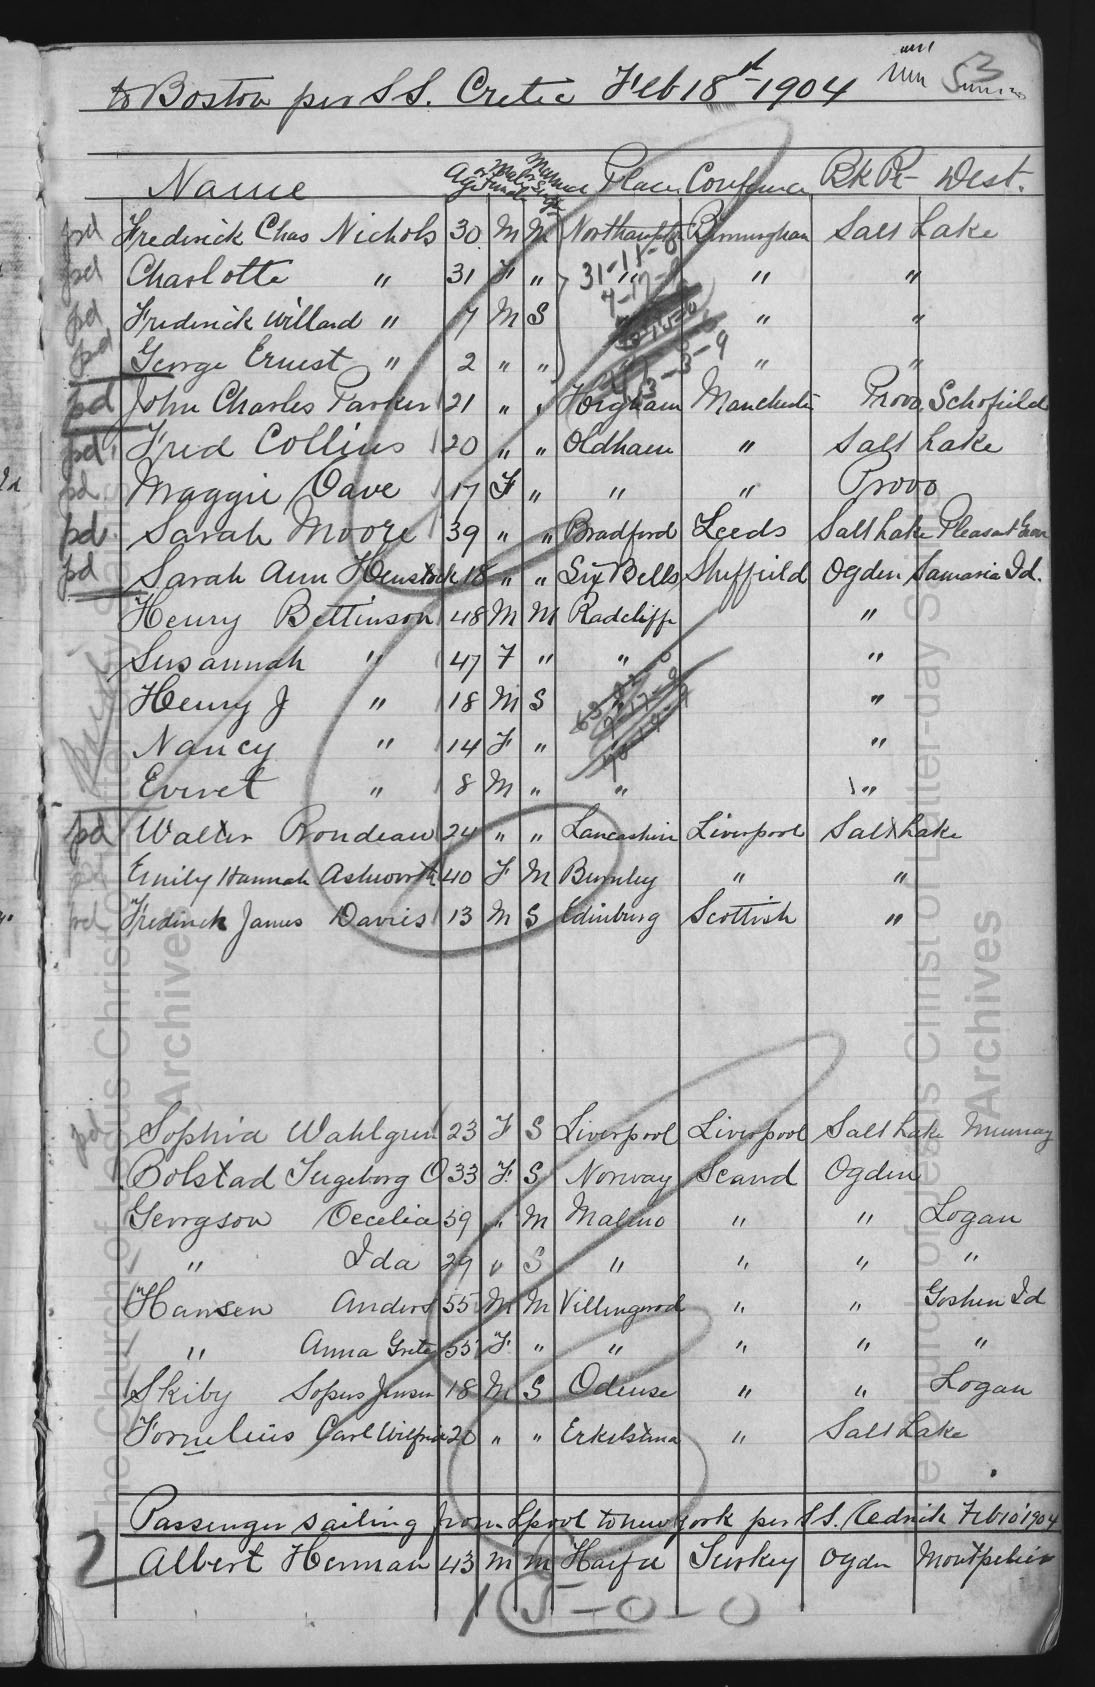 to Boston per S S. Cretic Feb 18st 1904 3
Name Age Male or Female Place Conference RR Dest.
pd Frederick Chas Nichols 30 M M Northampton Birmingham Salt Lake
pd Charlotte " 31 F " " " "
pd Frederick Willard " 7 M S " "
pd George Ernest " 2 " " " "
31-11-6
3-3-9
pd John Charles Parker 21 " " Manchester Provo Schofield
pd Fred Collins 20 " " Oldham " Salt Lake
pd Maggie Dave 17 F " " " Provo
pd Sarah Moore 39 " " Bradford Leeds Salt Lake Pleasant Grove
pd Sarah Ann Henstock 18 " " Six Bells Sheffield Ogden Samaria Id.
Henry Bettinson 48 M M Radcliffe "
Susannah " 47 F " " "
Henry J " 18 M S "
Nancy " 14 F " "
Evivet " 8 M " " "
pd Walter Rondeau 24 " " Lancashire Liverpool Salt Lake
Emily Hannah Ashworth 40 F M Burnley " "
pd Frederick James Davies 13 M S Edinburg Scottish "
pd Sophia Wahlgren 23 F S Liverpool Liverpool Salt Lake Murray
Bolstad Ingeborg O 33 F. S Norway Scand Ogden
Georgson Cecelia 59 " M Malmo " " Logan
" Ida 29 " S " " " "
Hansen Anders 55 M M Villingerod " " Goshen Id
" Anna Grete 55 F. " " " " "
Skiby Sopus Jensen 18 M S Odense " " Logan
Fornelius Carl Wilfrid 20 " " Erkelstuna " Salt Lake
Passenger sailing from Lpool to new york per S S. Cedrick Feb 10 1904
2 Albert Herman 43 m m Haifa Turkey Ogden Montpelier
15-0-0
The Church of Jesus Christ of Latter-day Saints
Archives
The Church of Jesus Christ of Latter-day Saints
Archives